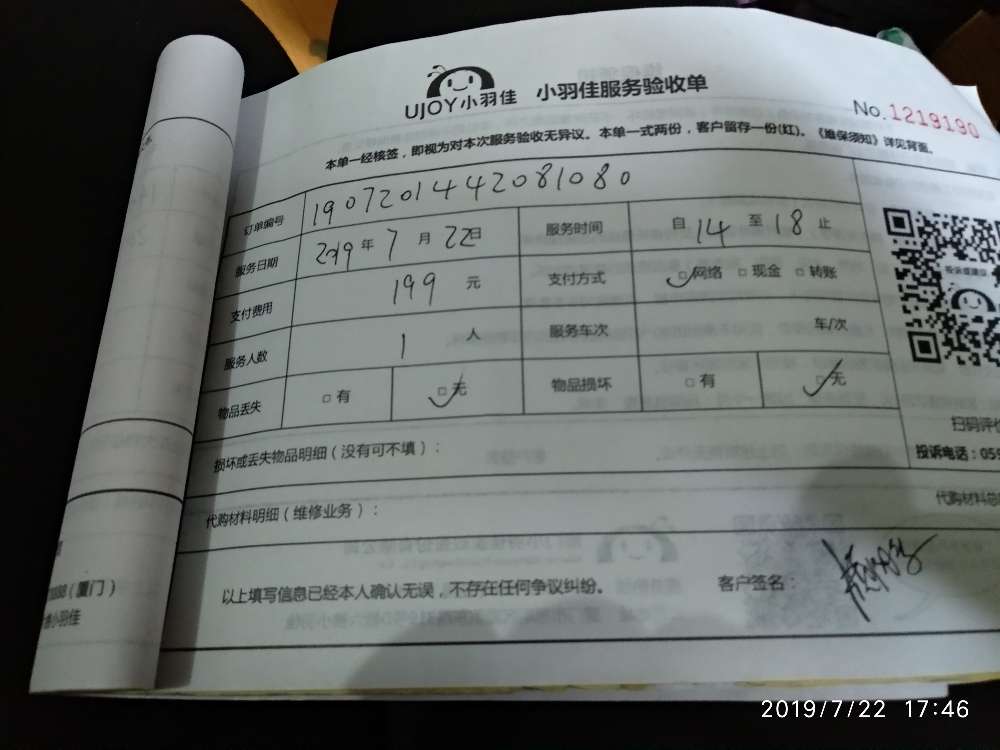 UJOY小羽佳 小羽佳服务验收单
No.1219190
本单一经核签，即视为对本次服务验收无异议。本单一式两份，客户留存一份(红)。《维保须知》详见背面。
订单编号 19072014442081080
服务日期 2019年7月22日 服务时间 自14至18止
支付费用 199元 支付方式 □网络 □现金 □转账
服务人数 1人 服务车次 车/次
物品丢失 □有 □无 物品损坏 □有 □无
投诉或建议
扫码评价
投诉电话：059
损坏或丢失物品明细（没有可不填）：
代购材料明细（维修业务）： 代购材料总
以上填写信息已经本人确认无误，不存在任何争议纠纷。 客户签名：
（厦门）
小羽佳
2019/7/22 17:46